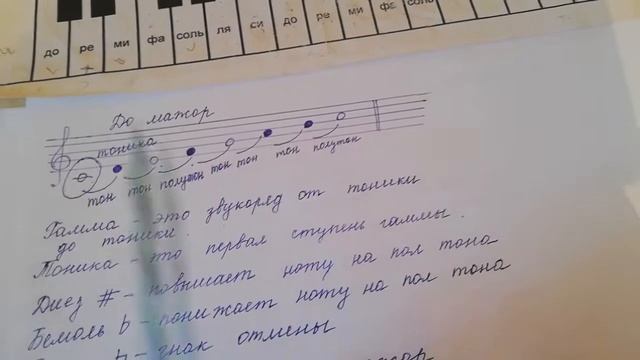 до ре ми фа соль ля си до ре ми фа соль
До мажор
тоника
тон тон полутон тон тон тон полутон
Гамма - это звукоряд от тоники
до тоники.
Тоника - это первая ступень гаммы.
Диез # - повышает ноту на пол тона
Бемоль b - понижает ноту на пол тона
знак отмены